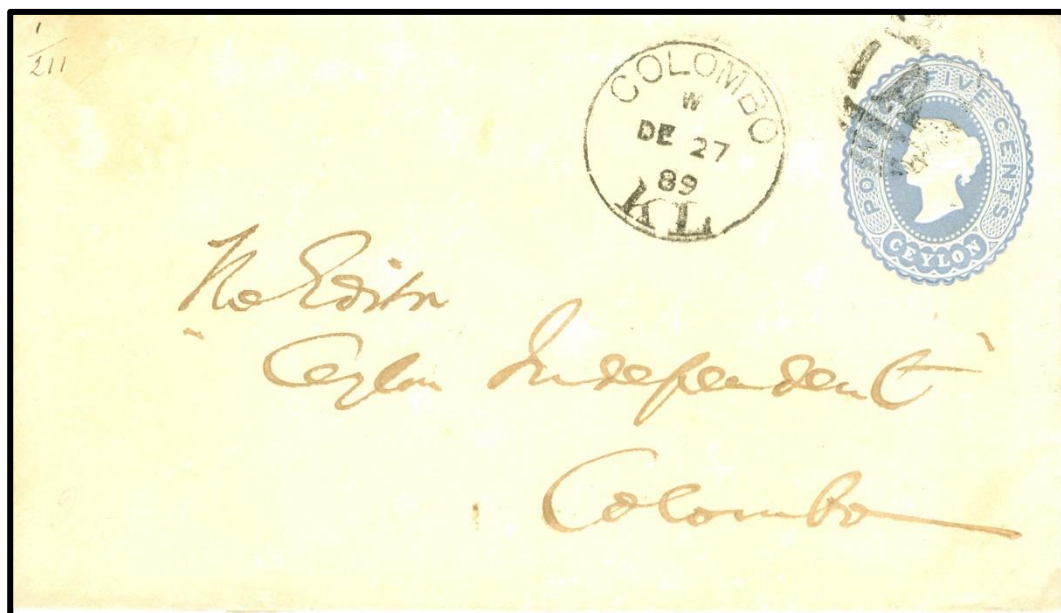 1
211
COLOMBO
W
DE 27
89
KL
POSTAGE FIVE CENTS
CEYLON
The Editor
"Ceylon Independent"
Colombo